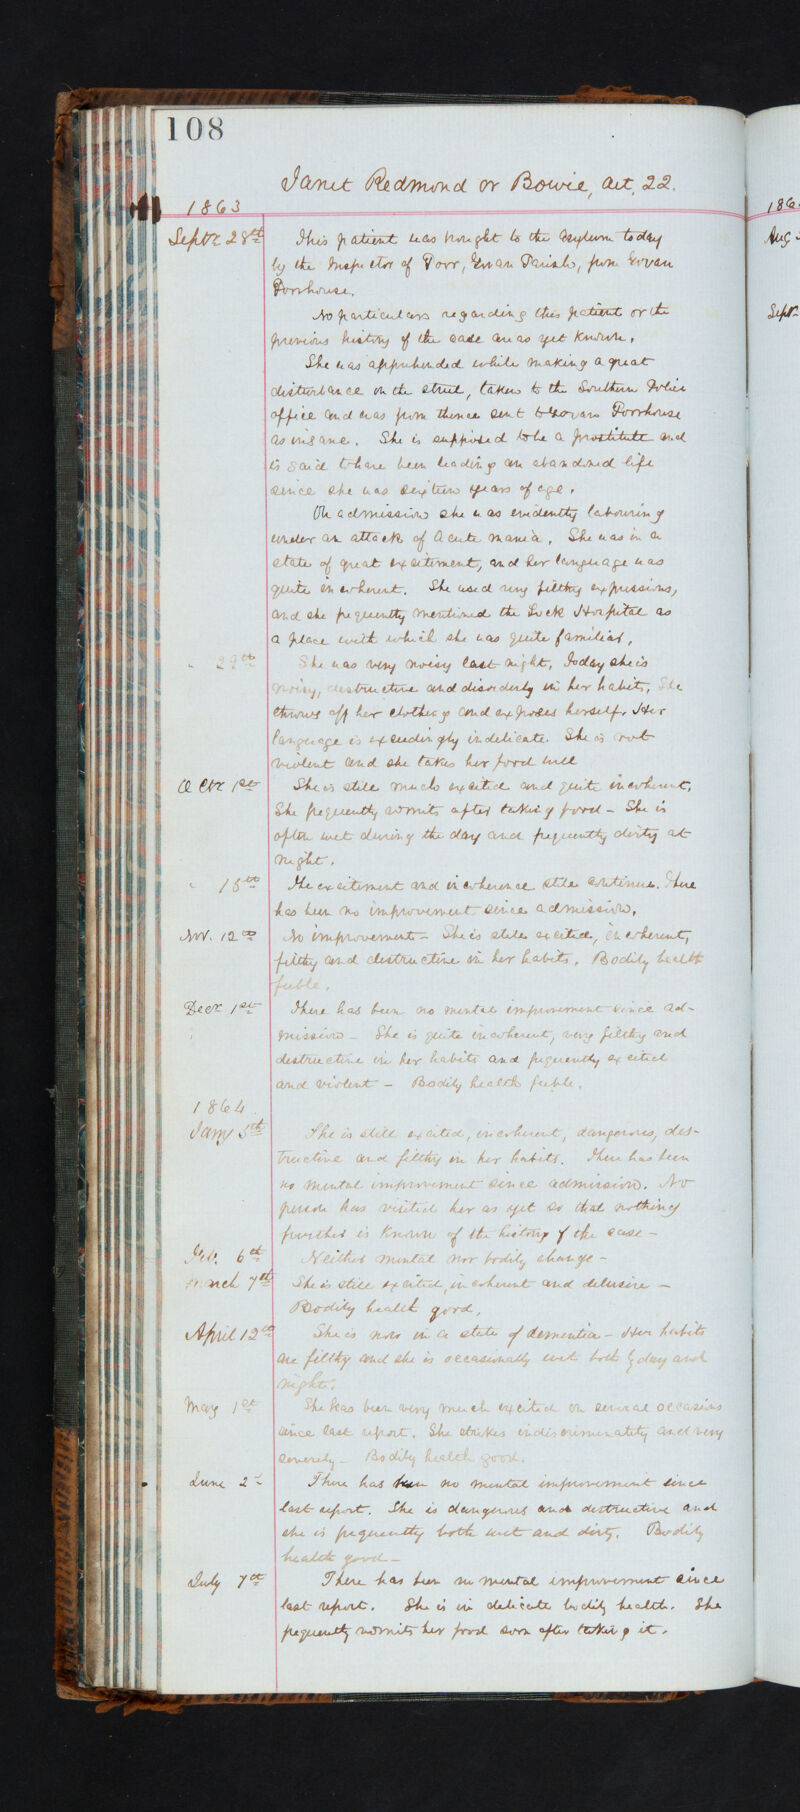 108
Janet Redmond or Bowie, aet. 22.
1863
Septr 28th This patient was brought to the Asylum today
by the Inspector of Poor, Govan Parish, from Govan
Poorhouse.
No particulars regarding this patient or the
previous history of the case are as yet known.
She was apprehended while making a great
disturbance on the street, taken to the Southern Police
office and was from thence sent to Govan Poorhouse
as insane. She is supposed to be a prostitute and
is said to have been leading an abandoned life
since she was sixteen years of age.
On admission she was evidently labouring
under an attack of acute mania. She was in a
state of great excitement, and her language was
quite incoherent. She used very filthy expressions,
and she frequently mentioned the Lock Hospital as
a place with which she was quite familiar.
" 29th She was very noisy last night. Today she is
noisy, destructive and disorderly in her habits. She
throws off her clothing and exposes herself. Her
language is exceedingly indelicate. She is not
violent and she takes her food well
Octr 1st She is still much excited and quite incoherent.
She frequently vomits after taking food - She is
often wet during the day and frequently dirty at
night.
" 15th The excitement and incoherence still continue. There
has been no improvement since admission.
Nov. 12th No improvement - She is still excited, incoherent,
filthy and destructive in her habits. Bodily health
feeble.
Decr 1st There has been no mental improvement since ad-
mission - She is quite incoherent, very filthy and
destructive in her habits and frequently excited
and violent - Bodily health feeble.
1864
Jany 5th She is still excited, incoherent, dangerous, des-
tructive and filthy in her habits. There has been
no mental improvement since admission. No
person has visited her as yet so that nothing
further is known of the history of the case -
Feb. 6th Neither mental nor bodily change -
March 7th She is still excited, incoherent and delusive -
Bodily health good.
April 12th She is now in a state of dementia - Her habits
are filthy and she is occasionally wet both by day and
night.
May 1st She has been very much excited on several occasions
since last report. She strikes indiscriminately and very
severely - Bodily health good.
June 2d There has been no mental improvement since
last report. She is dangerous and destructive and
she is frequently both wet and dirty. Bodily
health good -
July 7th There has been no mental improvement since
last report. She is in delicate bodily health. She
frequently vomits her food soon after taking it.
186
Aug
Septr